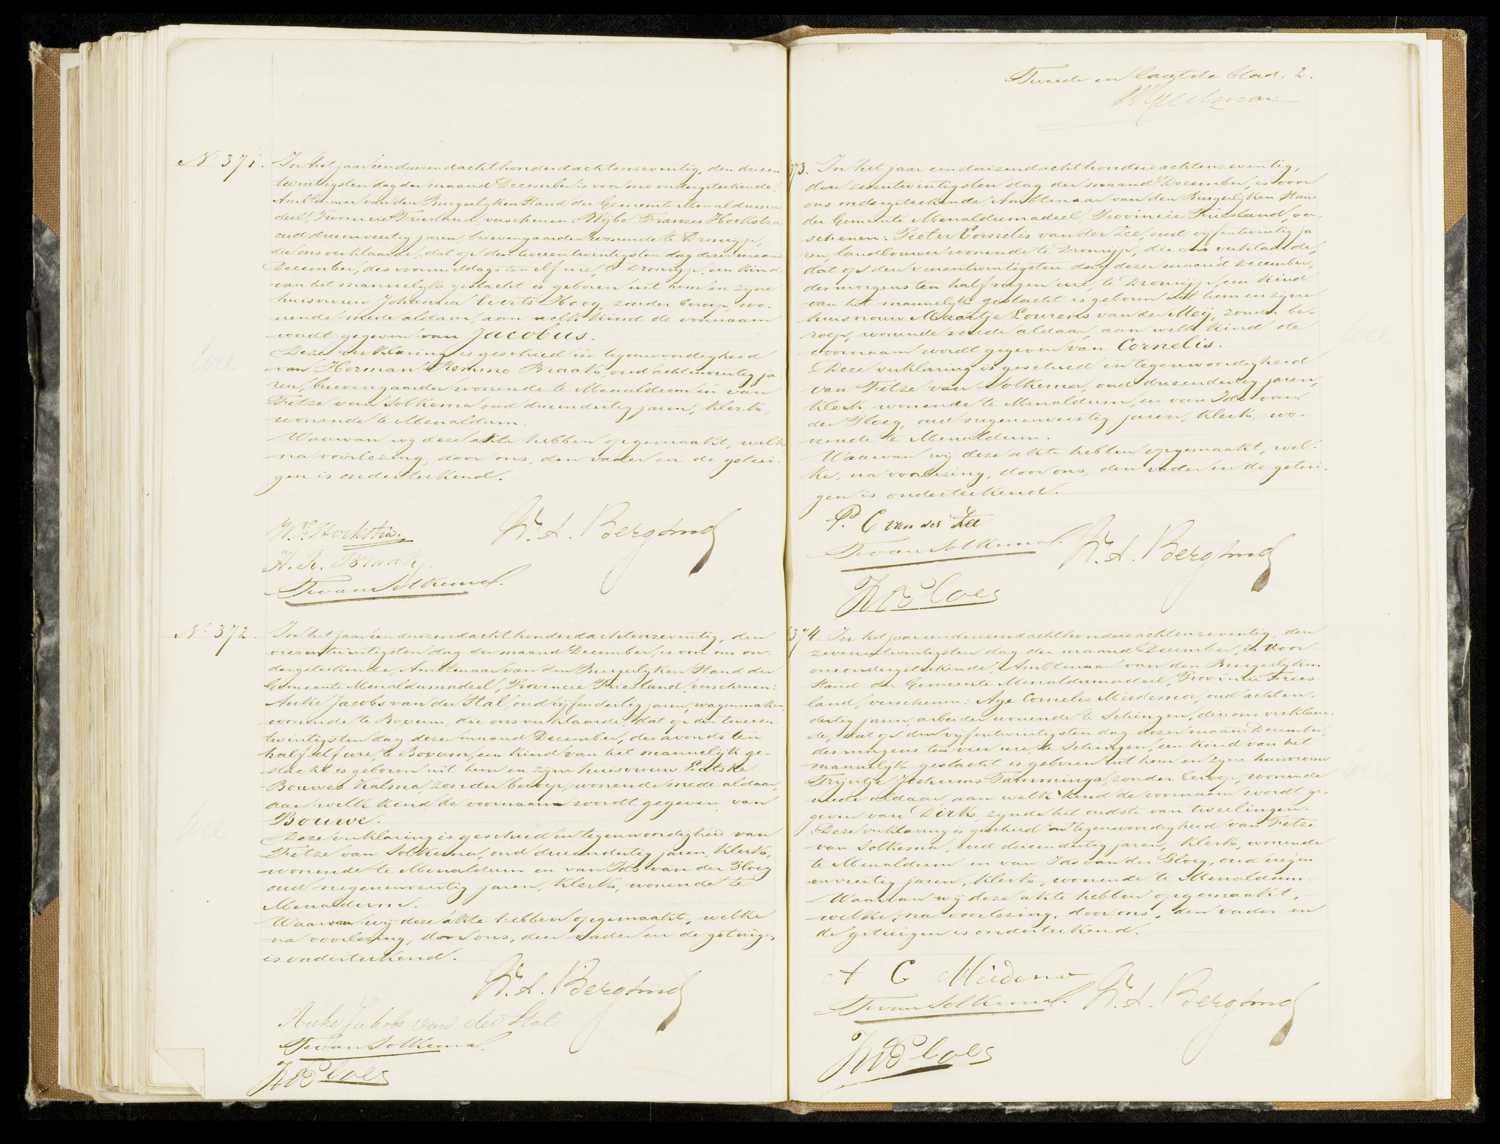 Tweede en laatste blad. 2.
No 371. In het jaar eenduizendachthonderdachtenzeventig, den drieen
twintigsten dag der maand December, is voor ons ondergeteekende
Ambtenaar van den Burgerlijken Stand der Gemeente Menaldumadeel
Provincie Friesland, verschenen: Wijbe Franzes Hoekstra
oud drieenveertig jaren, hovengaarder wonende te Dronrijp,
die ons verklaarde, dat op den tweeentwintigsten dag dezer maand
December, des voormiddags ten elf ure, te Dronrijp, een kind
van het mannelijk geslacht is geboren uit hem en zijne
huisvrouw Johanna Everts Hoog, zonder beroep, wo-
nende mede aldaar, aan welk kind de voornaam
wordt gegeven van Jacobus.
Deze verklaring is geschied in tegenwoordigheid
van Harman Remmo Braak, oud achtenveertig ja
ren, hovengaarder wonende te Menaldum en van
Tietze van Solkema, oud drieendertig jaren, klerk,
wonende te Menaldum.
Waarvan wij deze akte hebben opgemaakt, welke
na voorlezing, door ons, den vader en de getui-
gen is onderteekend.
W. F. Hoekstra.
H. R. Braak.
T. van Solkema.
No 372. In het jaar eenduizendachthonderdachtenzeventig, den
vierentwintigsten dag der maand December, is voor ons on-
dergeteekende, Ambtenaar van den Burgerlijken Stand der
Gemeente Menaldumadeel, Provincie Friesland, verschenen:
Auke Jacobs van der Stal, oud vijfendertig jaren, wagenmaker
wonende te Boxum, die ons verklaarde, dat op den tweeen
twintigsten dag dezer maand December, des avonds ten
half elf ure, te Boxum, een kind van het mannelijk ge-
slacht is geboren uit hem en zijne huisvrouw Eatske
Bouwes Kalma, zonder beroep, wonende mede aldaar,
aan welk kind de voornaam wordt gegeven van
Bouwe.
Deze verklaring is geschied in tegenwoordigheid van
Tietze van Solkema, oud drieendertig jaren, klerk,
wonende te Menaldum en van Ids van der Ploeg
oud negenenveertig jaren, klerk, wonende te
Menaldum.
Waarvan wij deze akte hebben opgemaakt, welke
na voorlezing, door ons, den vader en de getuigen
is onderteekend.
Auke Jakobs van der Stal
T. van Solkema.
73. In het jaar eenduizendachthonderdachtenzeventig,
den zevenentwintigsten dag der maand December, is voor
ons ondergeteekende Ambtenaar van den Burgerlijken Stand
der Gemeente Menaldumadeel, Provincie Friesland, ver-
schenen: Pieter Cornelis van der Zee, oud vijfentwintig ja
ren, landbouwer wonende te Dronrijp, die ons verklaarde,
dat op den vierentwintigsten dag dezer maand December,
des morgens ten half negen ure, te Dronrijp, een kind
van het mannelijk geslacht is geboren uit hem en zijne
huisvrouw Maartje Lourens van der Meij, zonder be-
roep, wonende mede aldaar, aan welk kind de
voornaam wordt gegeven van Cornelis.
Deze verklaring is geschied in tegenwoordigheid
van Tietze van Solkema, oud drieendertig jaren,
klerk, wonende te Menaldum, en van Ids van
der Ploeg, oud negenenveertig jaren, klerk, wo-
nende te Menaldum.
Waarvan wij deze akte hebben opgemaakt, wel-
ke, na voorlezing, door ons, den vader en de getui-
gen is onderteekend.
P. C van der Zee
T. van Solkema.
374 In het jaar eenduizendachthonderdachtenzeventig, den
zevenentwintigsten dag der maand December, is voor
ons ondergeteekende, Ambtenaar van den Burgerlijken
Stand der Gemeente Menaldumadeel, Provincie Fries
land, verschenen: Age Cornelis Miedema, oud achten-
dertig jaren, arbeider wonende te Schingen, die ons verklaar-
de, dat op den vijfentwintigsten dag dezer maand December,
des morgens ten vier ure, te Schingen, een kind van het
mannelijk geslacht is geboren uit hem en zijne huisvrouw
Trijntje Jochums Tamminga, zonder beroep, wonende
mede aldaar, aan welk kind de voornaam wordt ge-
geven van Dirk, zijnde het oudste van tweelingen.
Deze verklaring is geschied in tegenwoordigheid van Tietze
van Solkema, oud drieendertig jaren, klerk, wonende
te Menaldum en van Ids van der Ploeg, oud negen
enveertig jaren, klerk, wonende te Menaldum.
Waarvan wij deze akte hebben opgemaakt,
welke, na voorlezing, door ons, den vader en
de getuigen is onderteekend.
A C Miedema
T. van Solkema.